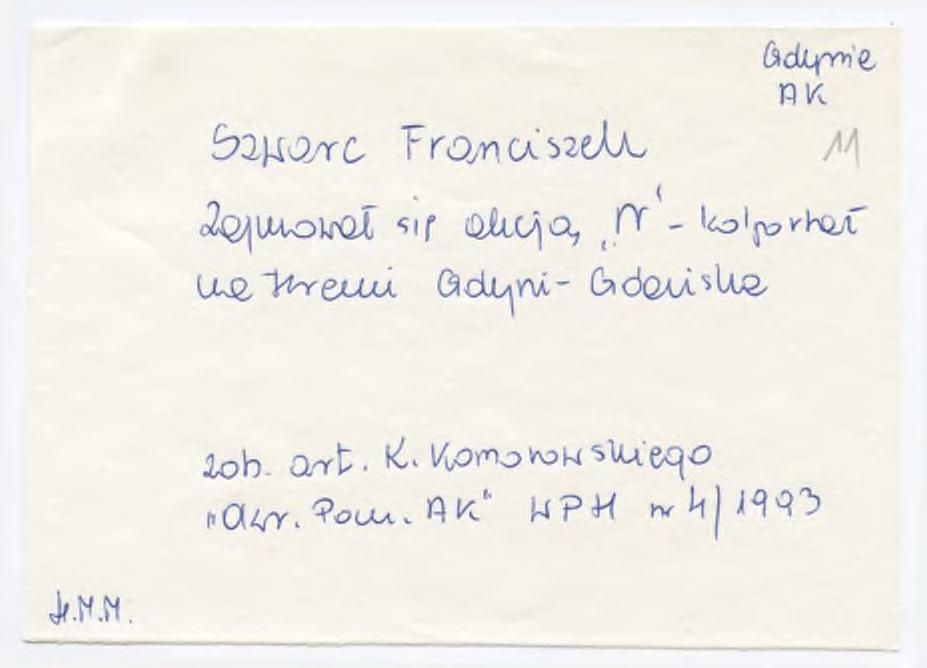 Gdynia
AK
11
Szwarc Franciszek
Zajmował się akcją „N" - kolportaż
na terenie Gdyni - Gdańska
zob. art. K. Komorowskiego
"Okr. Pom. AK" WPH nr 4/1993
H.M.M.